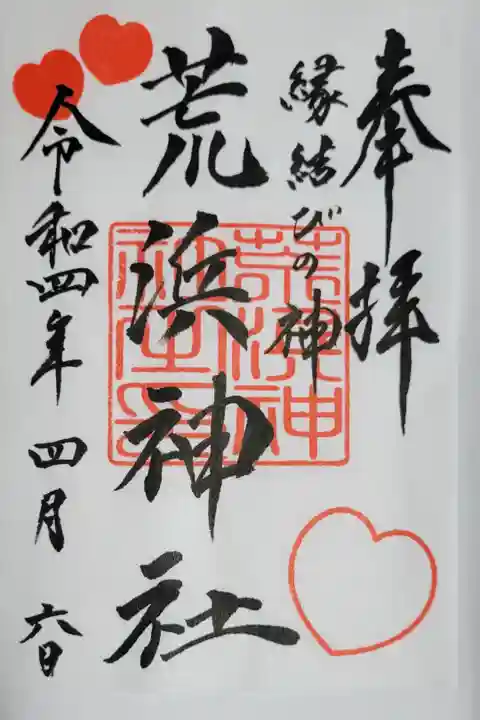 奉拝
縁結びの神
荒浜神社
荒浜神社印
令和四年 四月 六日